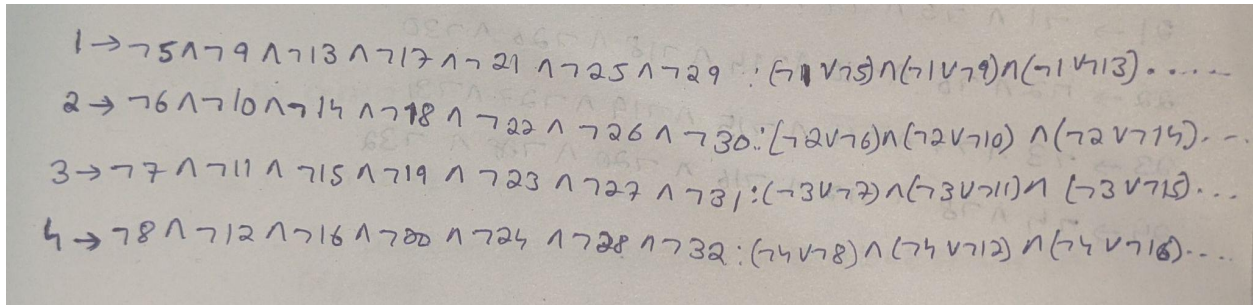 1→¬5∧¬9∧¬13∧¬17∧¬21∧¬25∧¬29 :(¬1∨¬5)∧(¬1∨¬9)∧(¬1∨¬13)......
2→¬6∧¬10∧¬14∧¬18∧¬22∧¬26∧¬30:(¬2∨¬6)∧(¬2∨¬10)∧(¬2∨¬14)....
3→¬7∧¬11∧¬15∧¬19∧¬23∧¬27∧¬31:(¬3∨¬7)∧(¬3∨¬11)∧(¬3∨¬15)...
4→¬8∧¬12∧¬16∧¬20∧¬24∧¬28∧¬32:(¬4∨¬8)∧(¬4∨¬12)∧(¬4∨¬16)....